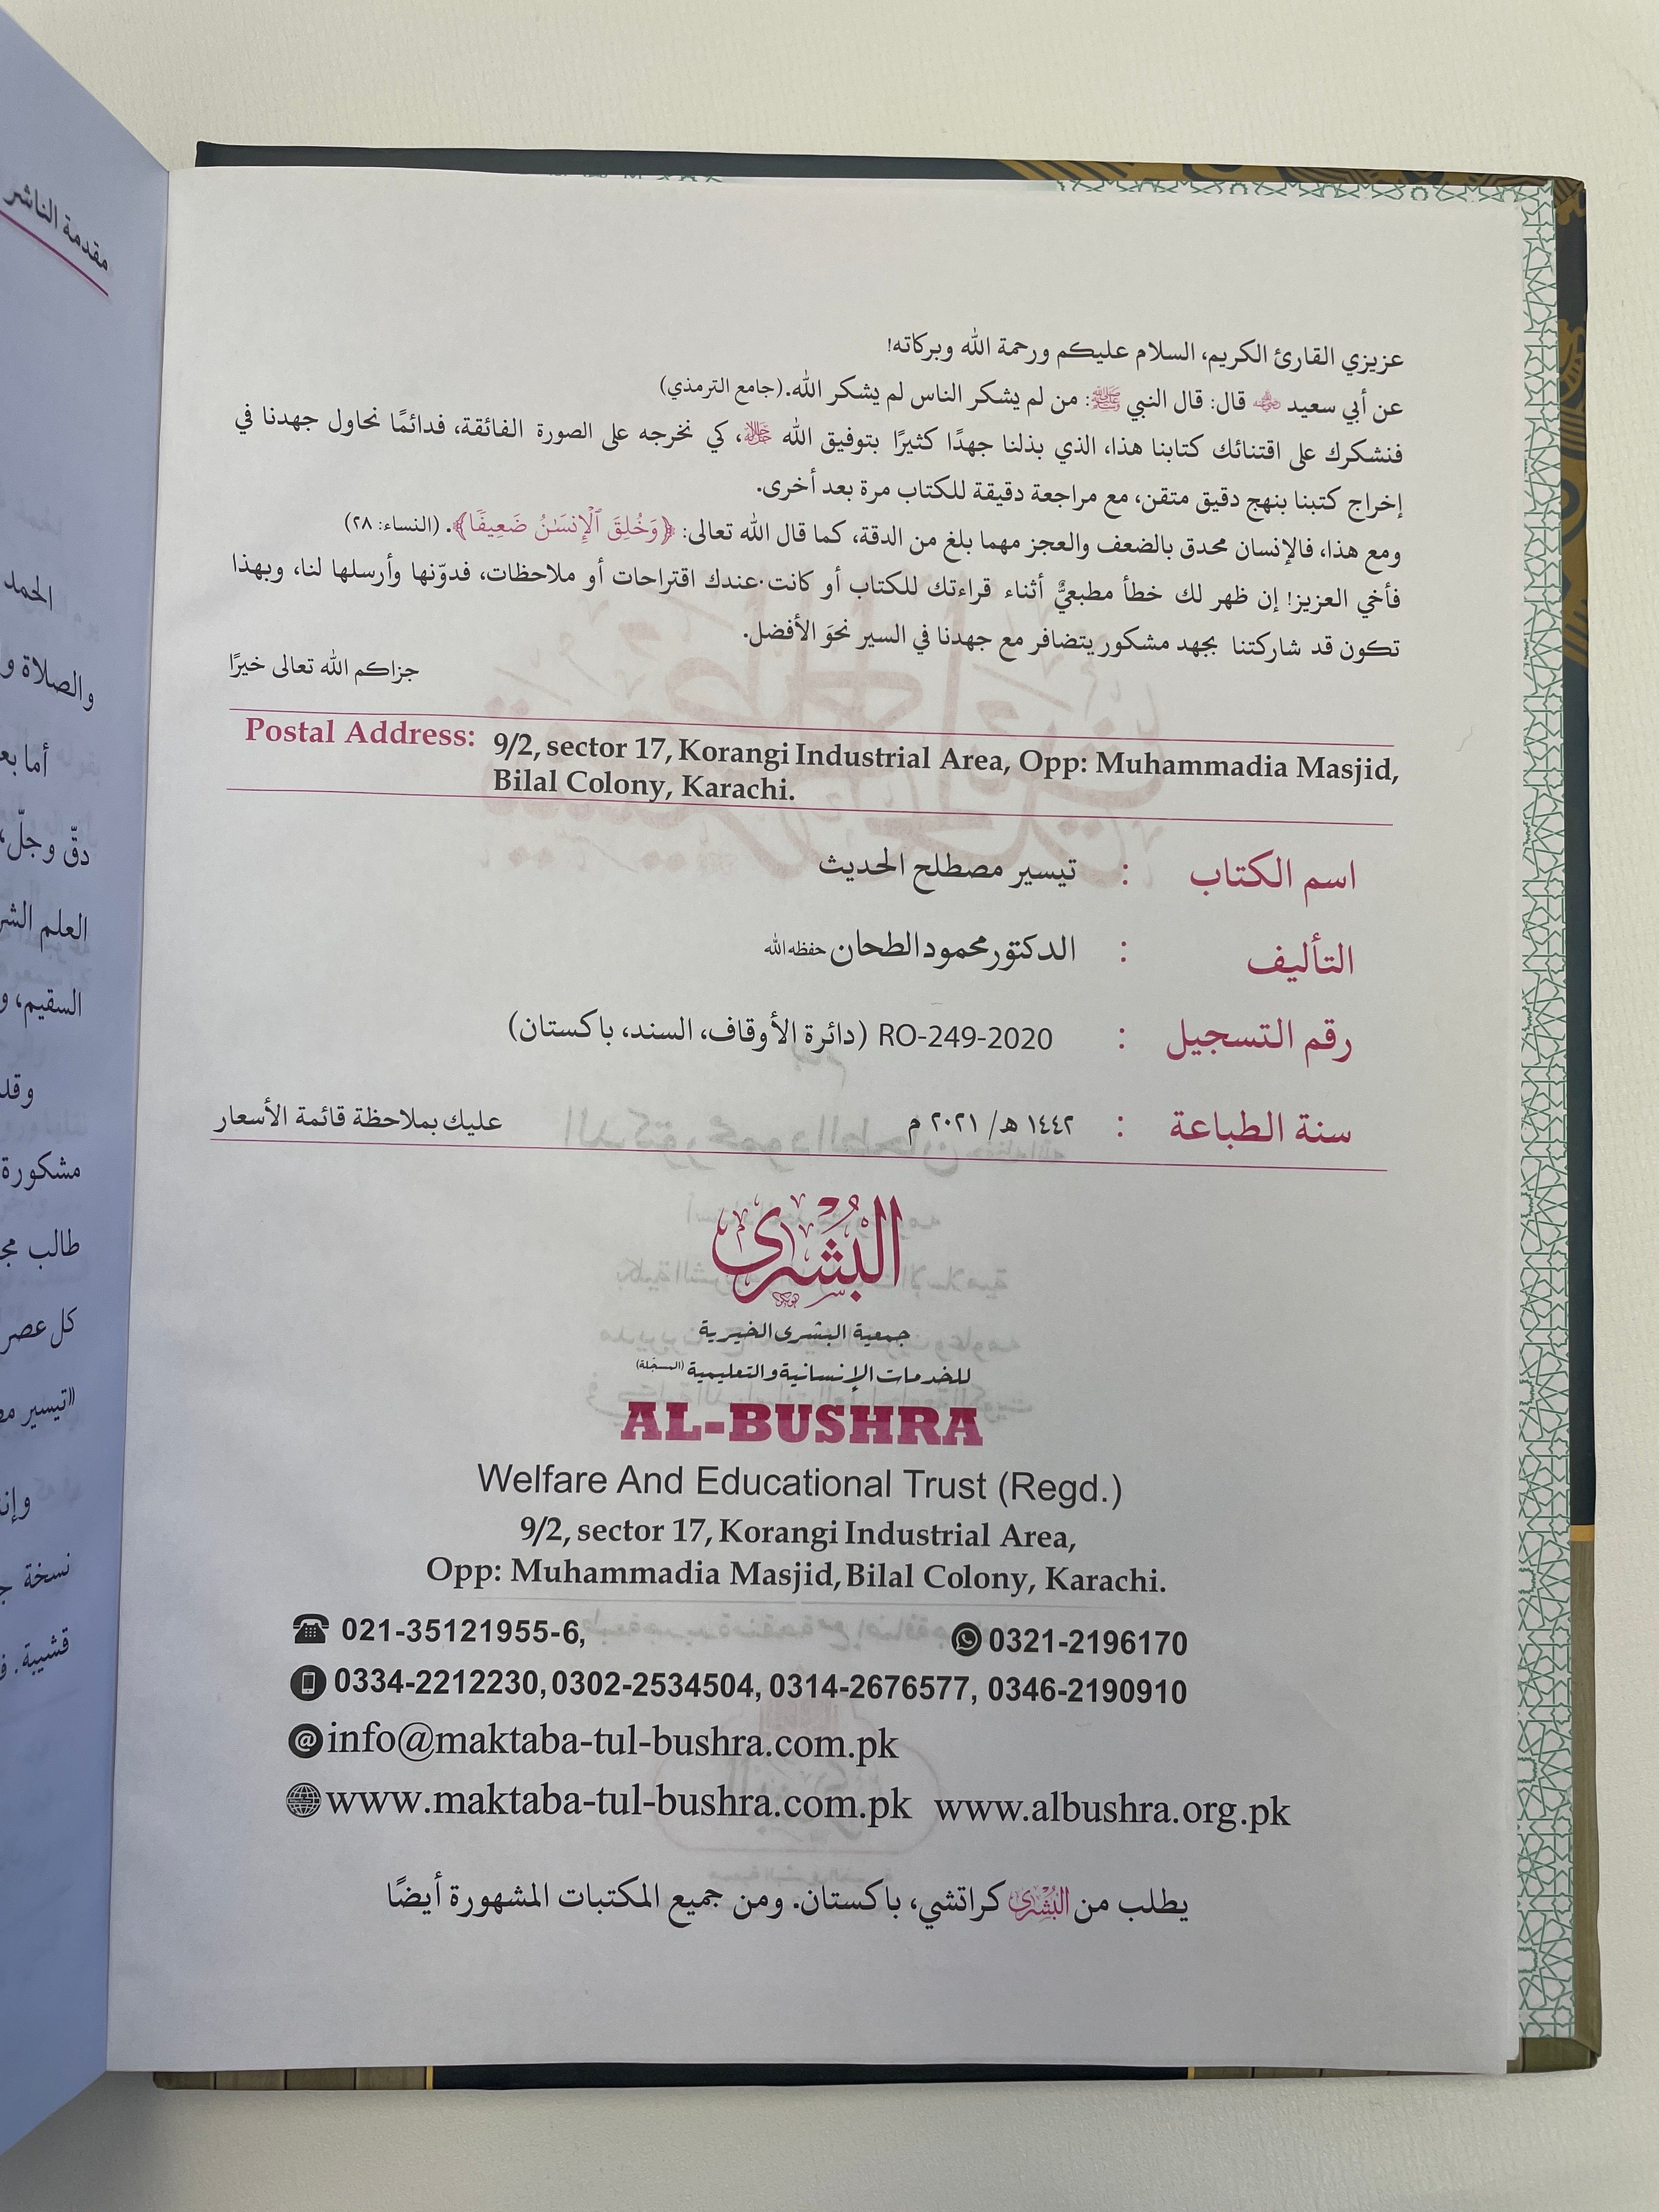 عزيزي القارئ الكريم، السلام عليكم ورحمة الله وبركاته!
عن أبي سعيد ﵁ قال: قال النبي ﷺ: من لم يشكر الناس لم يشكر الله. (جامع الترمذي)
فنشكرك على اقتنائك كتابنا هذا، الذي بذلنا جهدًا كثيرًا بتوفيق الله ﷻ، كي نخرجه على الصورة الفائقة، فدائمًا نحاول جهدنا في
إخراج كتبنا بنهج دقيق متقن، مع مراجعة دقيقة للكتاب مرة بعد أخرى.
ومع هذا، فالإنسان محدق بالضعف والعجز مهما بلغ من الدقة، كما قال الله تعالى: ﴿وَخُلِقَ ٱلْإِنسَٰنُ ضَعِيفًا﴾. (النساء: ٢٨)
فأخي العزيز! إن ظهر لك خطأ مطبعيٌّ أثناء قراءتك للكتاب أو كانت عندك اقتراحات أو ملاحظات، فدوّنها وأرسلها لنا، وبهذا
تكون قد شاركتنا بجهد مشكور يتضافر مع جهدنا في السير نحوَ الأفضل.
جزاكم الله تعالى خيرًا
Postal Address: 9/2, sector 17, Korangi Industrial Area, Opp: Muhammadia Masjid,
Bilal Colony, Karachi.
اسم الكتاب : تيسير مصطلح الحديث
التأليف : الدكتور محمود الطحان حفظه الله
رقم التسجيل : RO-249-2020 (دائرة الأوقاف، السند، باكستان)
سنة الطباعة : ١٤٤٢ هـ/ ٢٠٢١ م عليك بملاحظة قائمة الأسعار
البُشْرى
جمعية البشرى الخيرية
للخدمات الإنسانية والتعليمية (المسجّلة)
AL-BUSHRA
Welfare And Educational Trust (Regd.)
9/2, sector 17, Korangi Industrial Area,
Opp: Muhammadia Masjid, Bilal Colony, Karachi.
021-35121955-6, 0321-2196170
0334-2212230, 0302-2534504, 0314-2676577, 0346-2190910
info@maktaba-tul-bushra.com.pk
www.maktaba-tul-bushra.com.pk www.albushra.org.pk
يطلب من البُشْرى كراتشي، باكستان. ومن جميع المكتبات المشهورة أيضًا
مقدمة الناشر
الحمد
والصلاة و
أما بع
دقّ وجلّ،
العلم الشر
السقيم، و
وقد
مشكورة
طالب مج
كل عصر
«تيسير مص
وإن
نسخة ج
قشيبة. ف